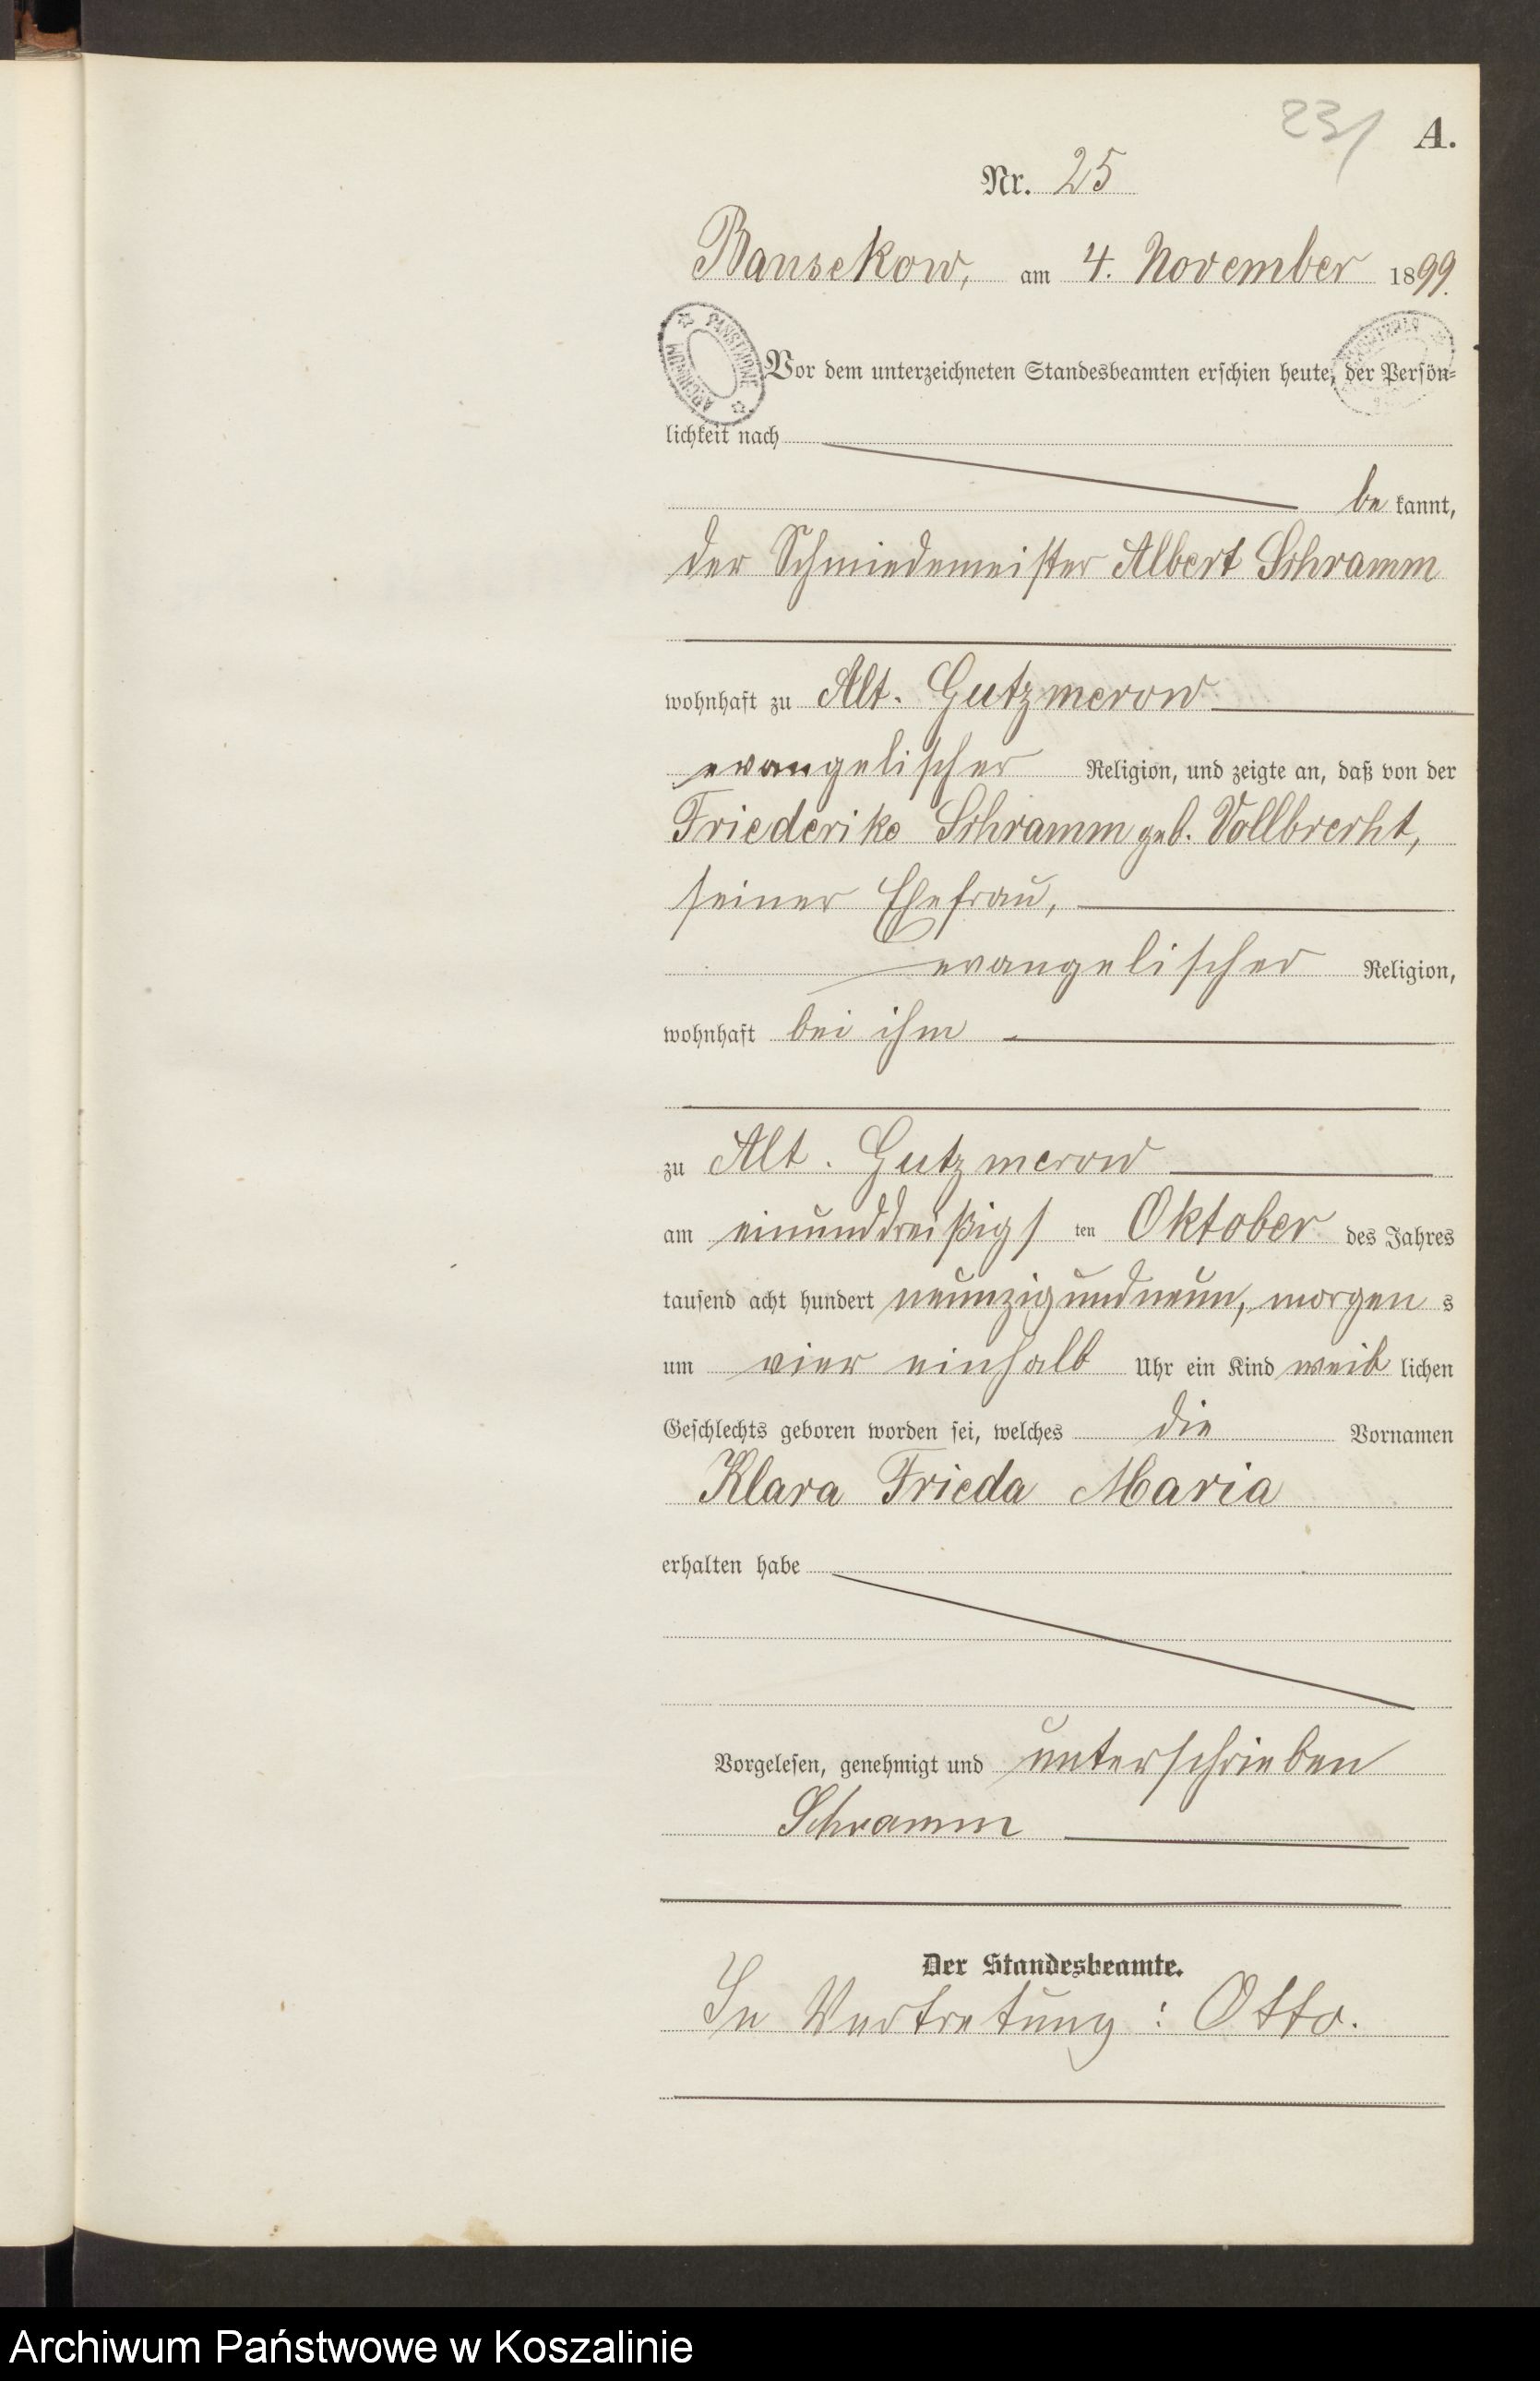 23/
A.
Nr. 25
Bansekow, am 4. November 1899.
Vor dem unterzeichneten Standesbeamten erschien heute, der Persön-
lichkeit nach
be kannt,
der Schmiedemeister Albert Schramm
wohnhaft zu Alt. Gutzmerow
evangelischer Religion, und zeigte an, daß von der
Friederike Schramm geb. Vollbrecht,
seiner Ehefrau,
evangelischer Religion,
wohnhaft bei ihm
zu Alt. Gutzmerow
am einunddreißigs ten Oktober des Jahres
tausend acht hundert neunzig und neun, morgen s
um vier einhalb Uhr ein Kind weib lichen
Geschlechts geboren worden sei, welches die Vornamen
Klara Frieda Maria
erhalten habe
Vorgelesen, genehmigt und unterschrieben
Schramm
Der Standesbeamte.
In Vertretung: Otto.
ARCHIWUM PAŃSTWOWE
Archiwum Państwowe w Koszalinie